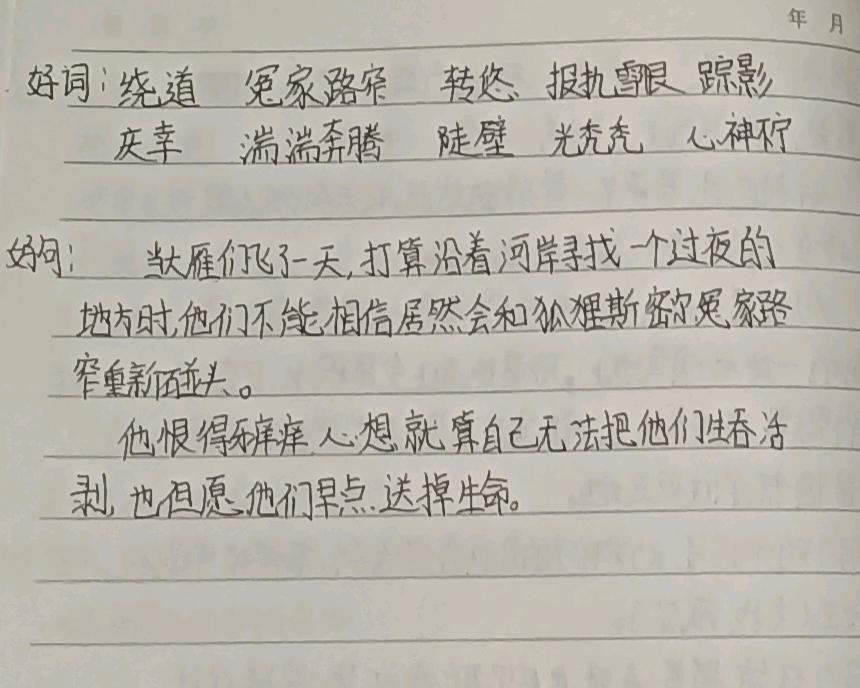 年 月
好词：绕道 冤家路窄 转悠 报执雪恨 踪影
庆幸 湍湍奔腾 陡壁 光秃秃 心神不宁
好句： 当大雁们飞了一天，打算沿着河岸寻找一个过夜的
地方时，他们不能相信居然会和狐狸斯密尔冤家路
窄重新碰头。
他恨得牙痒痒，心想就算自己无法把他们生吞活
剥，也但愿他们早点送掉生命。